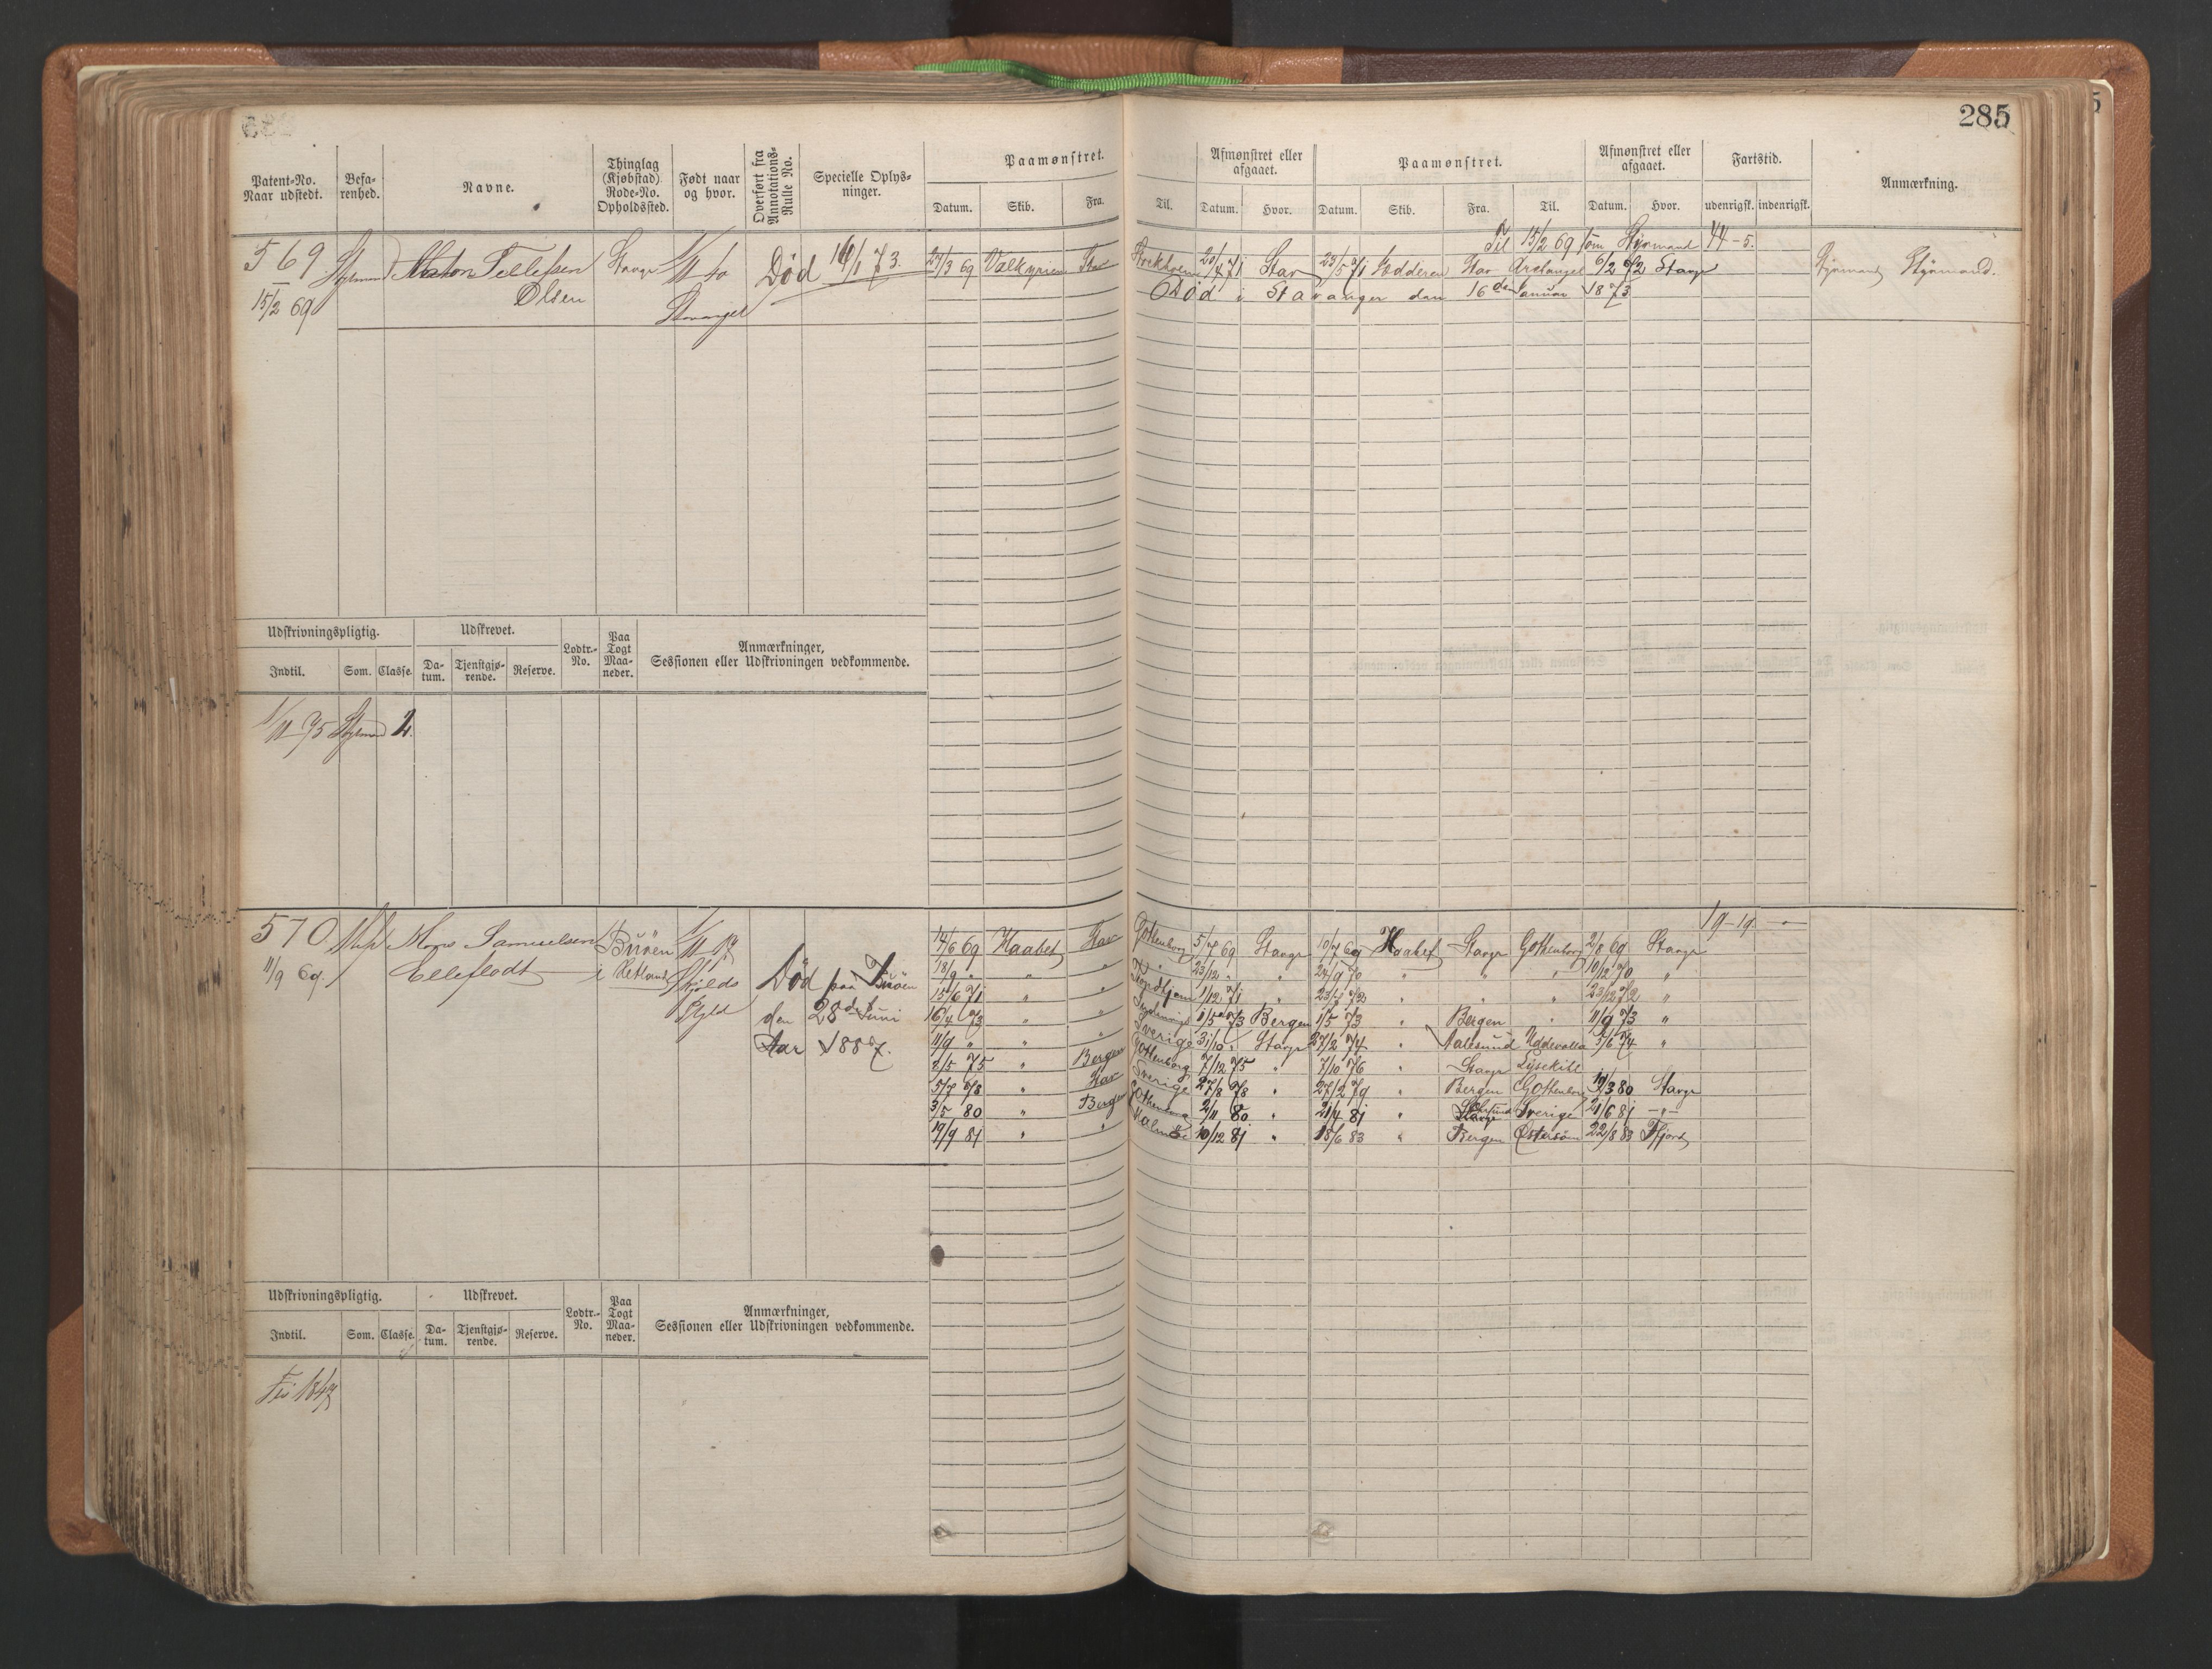 285
Patent-No. Naar udstedt.
Befa-renhed.
Navne.
Thinglag (Kjøbstad) Rode-No. Opholdssted.
Født naar og hvor.
Overført fra Annotations-Rulle No.
Specielle Oplys-ninger.
Paamønstret.
Datum. Skib. Fra. Til.
Afmønstret eller afgaaet.
Datum. Hvor.
Paamønstret.
Datum. Skib. Fra. Til.
Afmønstret eller afgaaet.
Datum. Hvor.
Fartstid.
udenrigsk. indenrigsk.
Anmærkning.
Til 15/2 69 som Styrmand 44-5.
569 Tellefsen Stavgr 1/11 40 Død 16/1 73. 24/3 69 Valkyrien Stav Stockholm 20/4 71 Stav 23/5 71 Stav Archangel 6/2 72 Stavgr Styrmand Styrmand.
15/2 69 Olsen Stavanger Død i Stavanger den 16de Januar 1873
Udskrivningspligtig.
Udskrevet.
Lodtr.-No.
Paa Togt Maa-neder.
Anmærkninger, Sessionen eller Udskrivningen vedkommende.
Indtil. Som. Classe. Da-tum. Tjenstgjø-rende. Reserve.
1/11 75 Styrmd 2.
570 Mons Samuelsen Buøen 1/11 17
11/9 69. i Hetland Skjolds
Død paa Buøen
den 28de Juni
Aar 1887.
19-19 -
14/6 69 Haabet Stav Gothenborg 5/7 69 Stavgr 10/7 69 Haabet Stavgr Gothenborg 2/8 69 Stavgr
18/9 " " " " 23/12 " " 24/9 70 " " " 10/12 70 "
15/6 71 " " Trondhjem 1/12 71 " 23/7 72 " " " 23/12 72 "
16/4 73 " " 1/5 73 Bergen 1/5 73 " Bergen " 11/9 73 "
11/9 " " " Sverige 31/10 " Stavgr 27/2 74 " Aalesund Uddevalla 5/6 74 "
2/5 75 " Bergen Gothenborg 7/12 75 " 7/10 76 " Stavgr Lysekihl
5/7 78 " Stav Sverige 27/8 78 " 27/2 79 " Bergen Gothenborg 17/3 80 Stavgr
3/5 80 " Bergen Gothenborg 2/11 80 " 21/4 81 " Sverige 21/6 81 - " -
19/9 81 " " Malmöe 10/12 81 " 18/6 83 " Bergen Østersøen 22/8 83
Udskrivningspligtig.
Udskrevet.
Lodtr.-No.
Paa Togt Maa-neder.
Anmærkninger, Sessionen eller Udskrivningen vedkommende.
Indtil. Som. Classe. Da-tum. Tjenstgjø-rende. Reserve.
Fri 1847